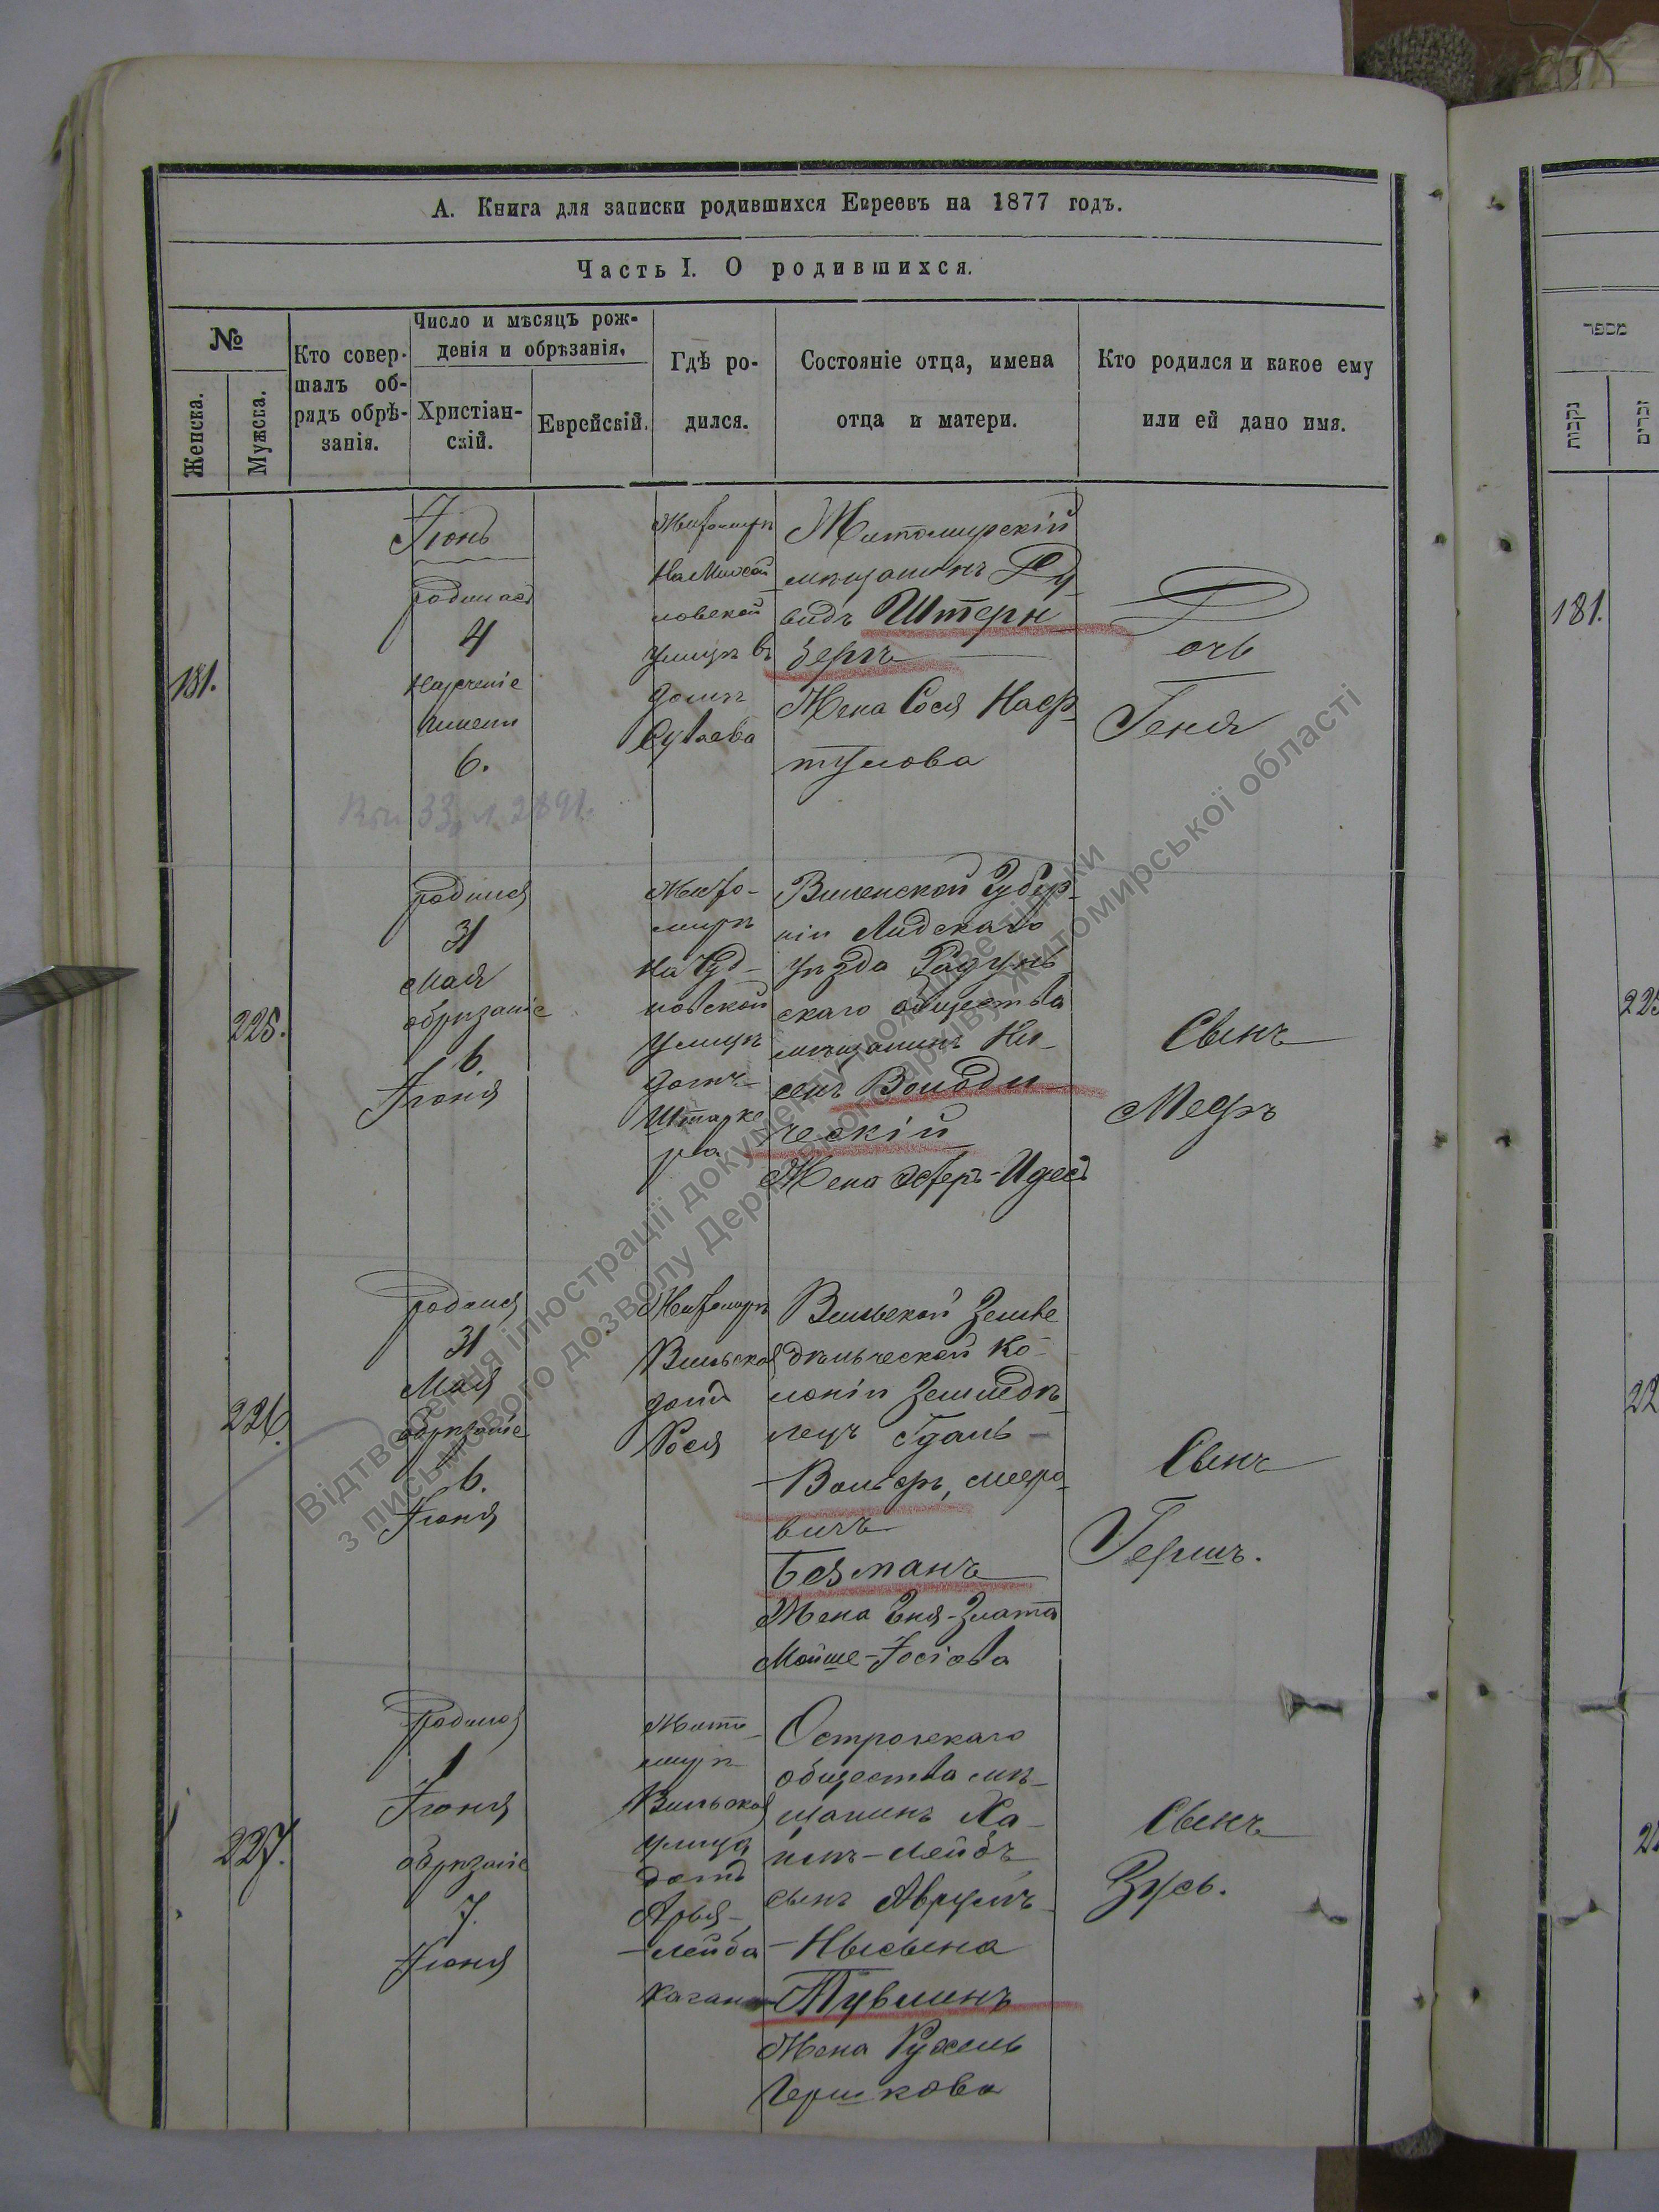 А. Книга для записки родившихся Евреевъ на 1877 годъ.
Часть I. О родившихся.
№
Женска.
Мужска.
Кто совер-
шалъ об-
рядъ обрѣ-
занія.
Число и мѣсяцъ рож-
денія и обрѣзанія.
Христіан-
скій.
Еврейскій.
Гдѣ ро-
дился.
Состояніе отца, имена
отца и матери.
Кто родился и какое ему
или ей дано имя.
181.
Іюнь
родилась
4
Нареченіе
имени
6.
Житомиръ
улицѣ въ
домѣ
Житомирскій
мѣщанинъ Ду
видъ Штерн
бергъ
Жена Сося Наф
тулова
Дочь
Геня
225.
родился
31
мая
обрѣзаніе
6.
Іюня
Жито-
миръ
на Чуд-
новской
улицѣ
домъ
Штарке
ра
Виленской Губер-
ніи Лидскаго
уѣзда Радунь
скаго общества
мѣщанинъ
Жена Эстеръ-Идесъ
Сынъ
Мееръ
226.
родился
31
Мая
обрѣзаніе
6.
Іюня
Житомиръ
Вильская
домъ
Вильской Земле
дѣльческой Ко-
лоніи Землѣдѣ
лецъ
-Вольфъ, мееро
вичъ
Жена Злата
Мойше-Іосіова
Сынъ
Гершъ.
227.
родился
1
Іюня
обрѣзаніе
7.
Іюня
Жито-
миръ
Вильская
улица
домъ
Арья-
-лейба
Каган
Острогскаго
общества мѣ-
щанинъ Ха-
имъ-Лейбъ
сынъ Аврумъ-
-Нысына
Тувминъ
Жена Рухель
Гершкова
Сынъ
Зусь.
Відтворення ілюстрації документу можливе тільки
з письмового дозволу Державного архіву Житомирської області
מספר
נקבות
זכרים
181.